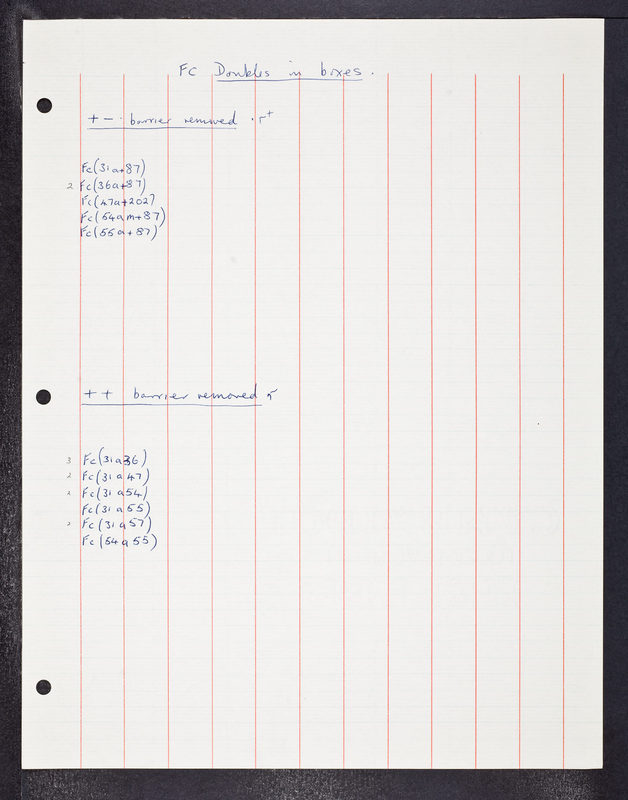 FC Doubles in boxes.
+ - barrier removed · r+
Fc(31a+87)
2 Fc(36a+87)
Fc(47a+202)
Fc(54am+87)
Fc(55a+87)
+ + barrier removed r
3 Fc(31a36)
2 Fc(31a47)
2 Fc(31a54)
Fc(31a55)
2 Fc(31a57)
Fc(54a55)